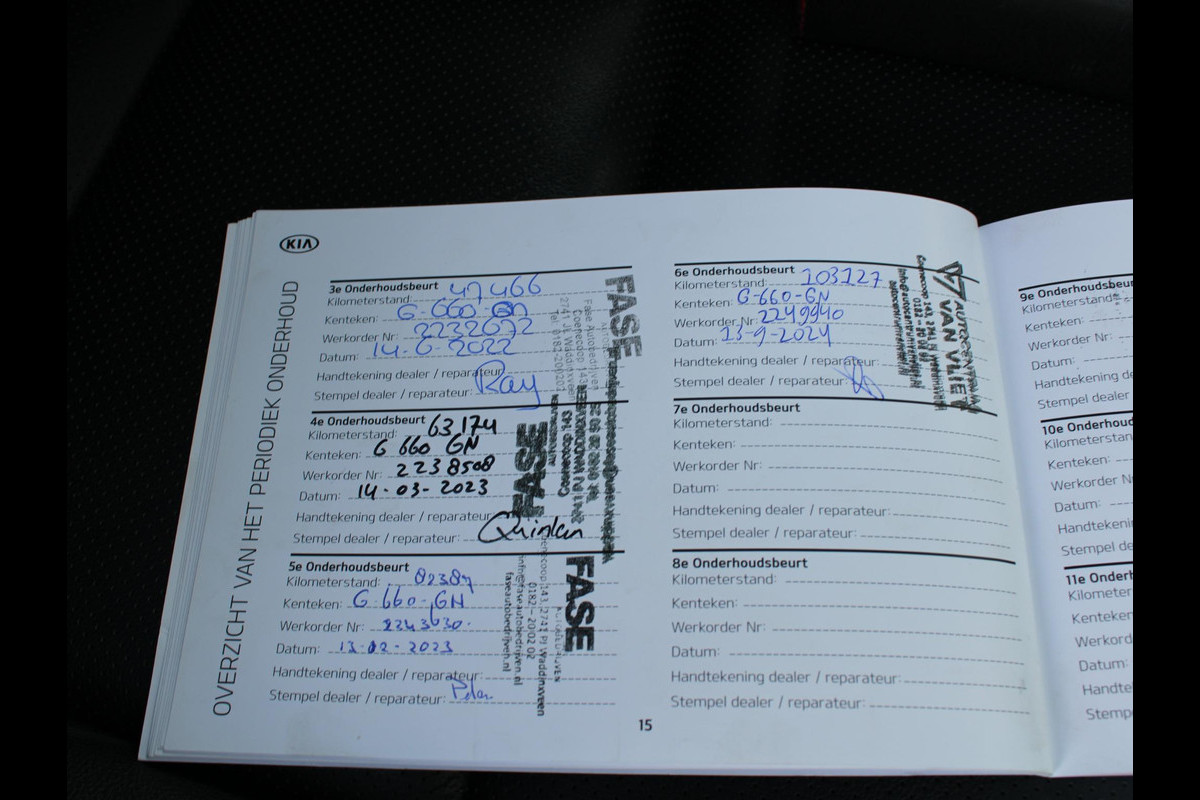 KIA
OVERZICHT VAN HET PERIODIEK ONDERHOUD
3e Onderhoudsbeurt
Kilometerstand: 47466
Kenteken: G-660-GN
Werkorder Nr: 2232672
Datum: 14-6-2022
Handtekening dealer / reparateur:
Stempel dealer / reparateur: Ray
FASE
Fase Autobedrijven
Coenecoop 143
2741 PJ Waddinxveen
4e Onderhoudsbeurt
Kilometerstand: 63174
Kenteken: G 660 GN
Werkorder Nr: 2238508
Datum: 14-03-2023
Handtekening dealer / reparateur:
Stempel dealer / reparateur: Quinlan
FASE
5e Onderhoudsbeurt
Kilometerstand: 82387
Kenteken: G-660-GN
Werkorder Nr: 2243630
Datum: 13-12-2023
Handtekening dealer / reparateur:
Stempel dealer / reparateur:
FASE
Coenecoop 143, 2741 PJ Waddinxveen
0182 - 20 02 02
info@faseautobedrijven.nl
faseautobedrijven.nl
6e Onderhoudsbeurt
Kilometerstand: 103127
Kenteken: G-660-GN
Werkorder Nr: 2249940
Datum: 13-9-2024
Handtekening dealer / reparateur:
Stempel dealer / reparateur:
VAN VLIET
7e Onderhoudsbeurt
Kilometerstand:
Kenteken:
Werkorder Nr:
Datum:
Handtekening dealer / reparateur:
Stempel dealer / reparateur:
8e Onderhoudsbeurt
Kilometerstand:
Kenteken:
Werkorder Nr:
Datum:
Handtekening dealer / reparateur:
Stempel dealer / reparateur:
15
9e Onderhoudsbeu
Kilometerstand:
Kenteken:
Werkorder Nr:
Datum:
Handtekening
Stempel dealer
10e Onderhoud
Kilometerstan
Kenteken:
Werkorder N
Datum:
Handtekenin
Stempel de
11e Onderh
Kilometer
Kenteken
Werkord
Datum:
Handte
Stemp